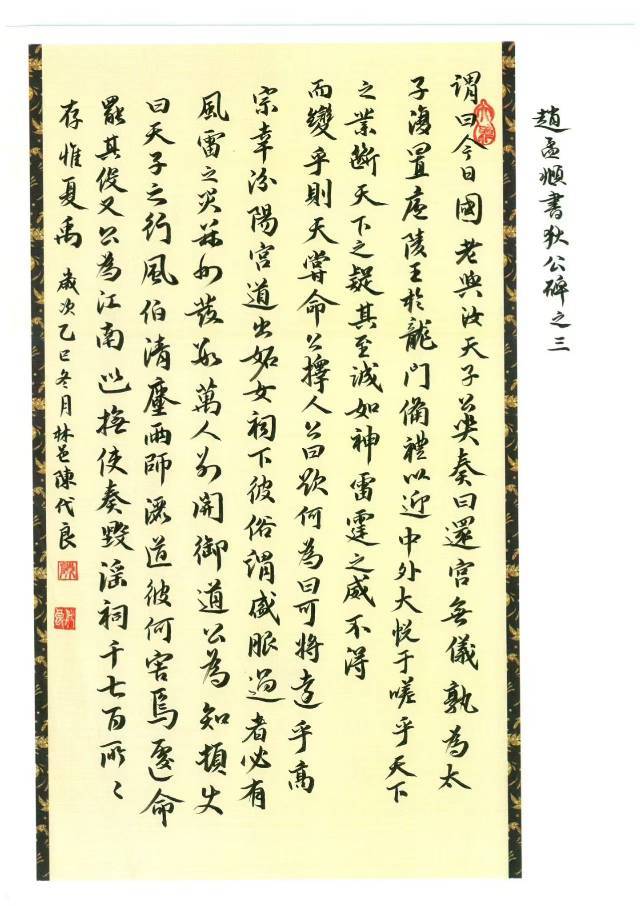 趙孟頫書狄公碑之三
謂曰今日國老與汝天子公哭奏曰還宮無儀孰為太
子復置廬陵王於龍門備禮以迎中外大悅于嗟乎天下
之業斷天下之疑其至誠如神雷霆之威不得
而變乎則天嘗命公擇人公曰欲何為曰可將乎高
宗幸汾陽宮道出妬女祠下彼俗謂盛服過者必有
風雷之災并州發數萬人別開御道公為知頓史
曰天子之行風伯清塵雨師灑道彼何害焉遽命
罷其役又公為江南巡撫使奏毀淫祠千七百所〻
存惟夏禹 歲次乙巳冬月林邑陳代良